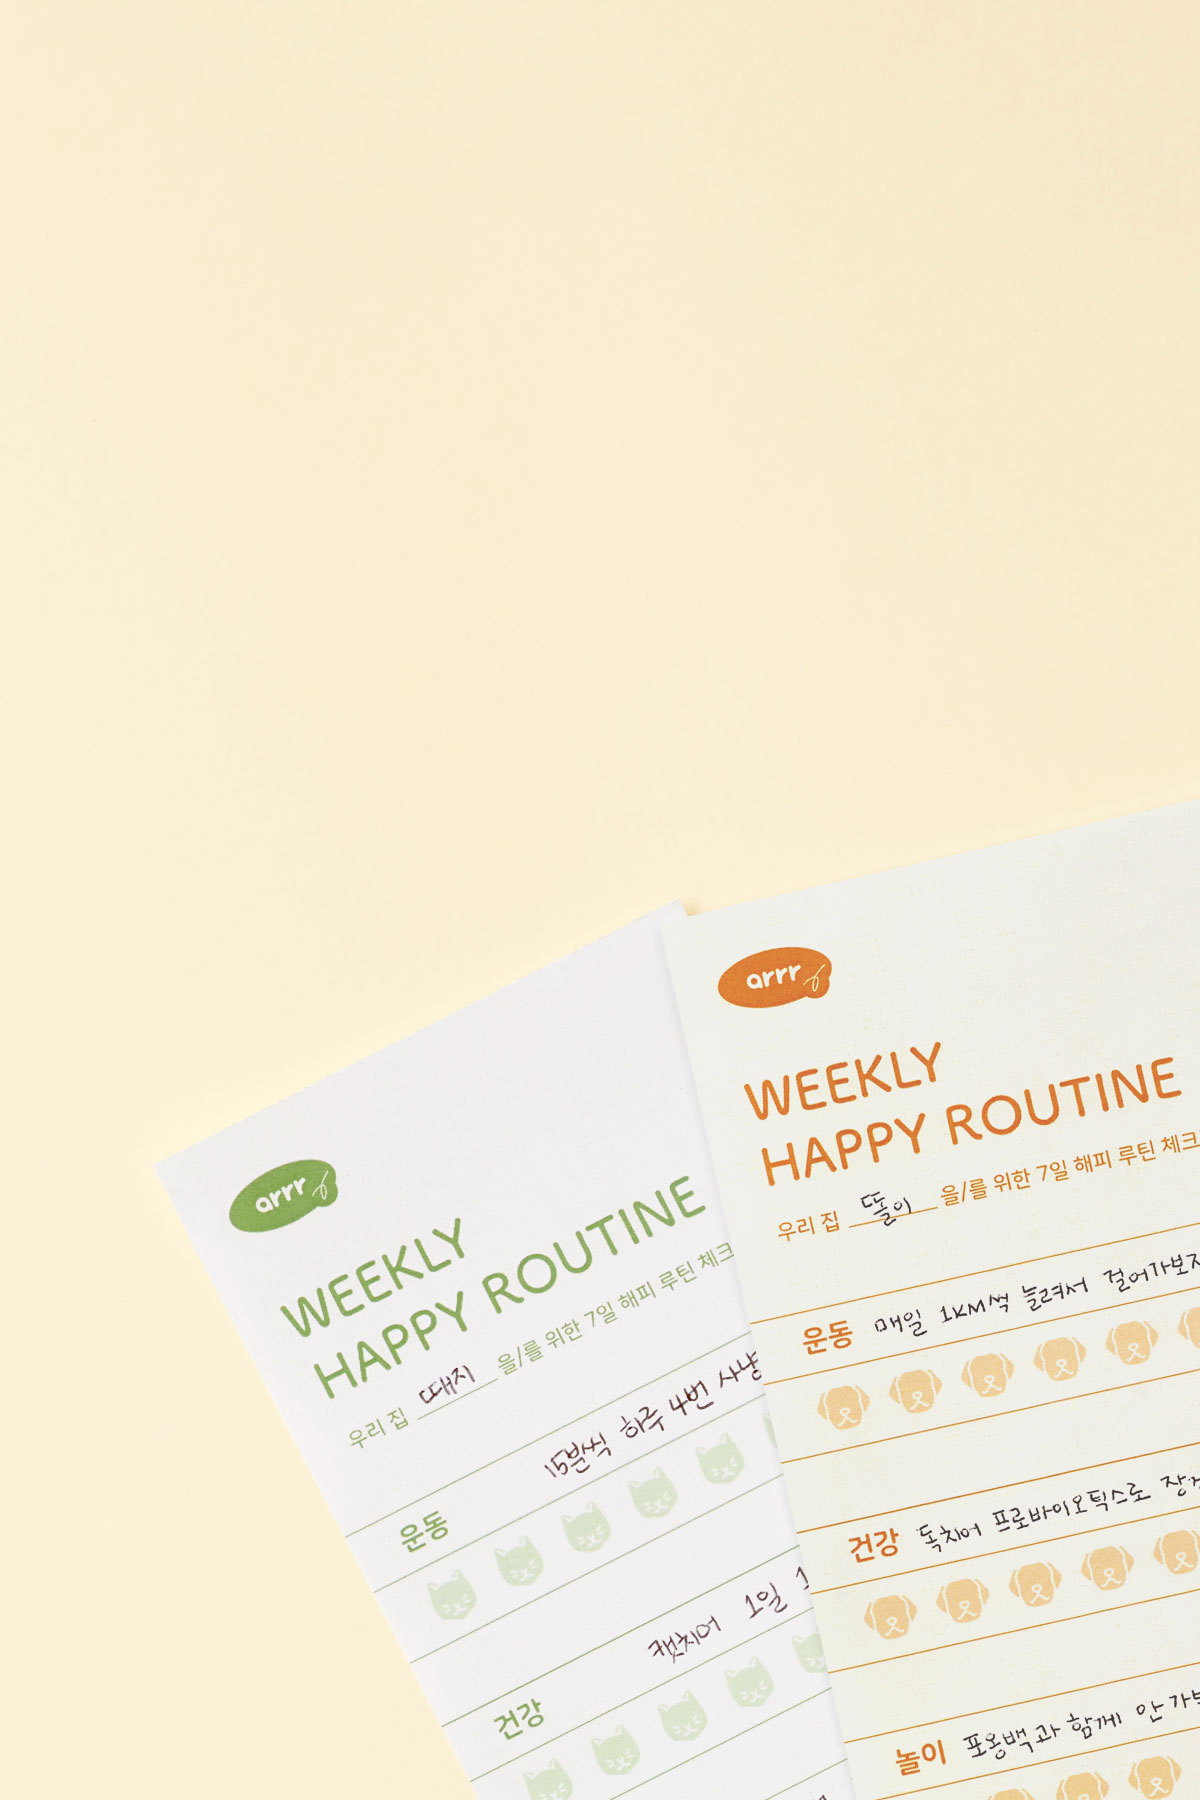 arrr
WEEKLY
HAPPY ROUTINE
우리 집 때지 을/를 위한 7일 해피 루틴 체크
운동 15분씩 하루 4번 사냥
건강 캣치어 1일
arrr
WEEKLY
HAPPY ROUTINE
우리 집 똘이 을/를 위한 7일 해피 루틴 체크
운동 매일 1KM씩 늘려서 걸어가보자
건강 독치어 프로바이오틱스로
놀이 포옹백과 함께 안